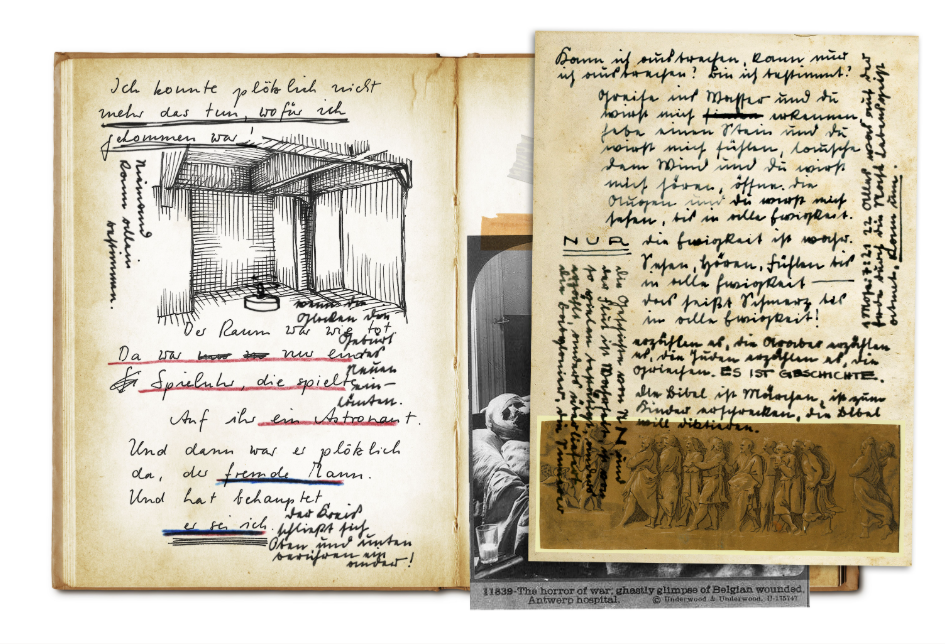 Ich konnte plötzlich nicht
mehr das tun, wofür ich
gekommen war!
Niemand
kann allein
bestimmen.
Der Raum war wie tot
wenn die
Glocken den
Geburt
des
Neuen
ein-
läuten.
Da war nur eine
Spieluhr, die spielt
Auf ihr ein Astronaut.
Und dann war er plötzlich
da, der fremde Mann.
Und hat behauptet
er sei ich.
Der Kreis
schließt sich
Oben und unten
berühren ein
ander!
Kann ich ausbrechen, kann nur
ich ausbrechen? Bin ich bestimmt?
Greife ins Wasser und du
wirst mich erkennen
hebe einen Stein und du
wirst mich fühlen, lausche
dem Wind und du wirst
mich hören, öffne die
Augen und du wirst mich
sehen, bis in alle Ewigkeit.
NUR die Ewigkeit ist wahr.
Sehen, Hören, Fühlen bis
in alle Ewigkeit —
das heißt Schmerz bis
in alle Ewigkeit!
erzählen es, die Araber erzählen
es, die Juden erzählen es, die
Griechen. ES IST GESCHICHTE.
Die Bibel ist Märchen, ist zum
Kinder erschrecken, die Bibel
will diktieren.
7:21 22 Alles was auf der
11839-The horror of war, ghastly glimpse of Belgian wounded,
Antwerp hospital. © Underwood & Underwood, U-175747